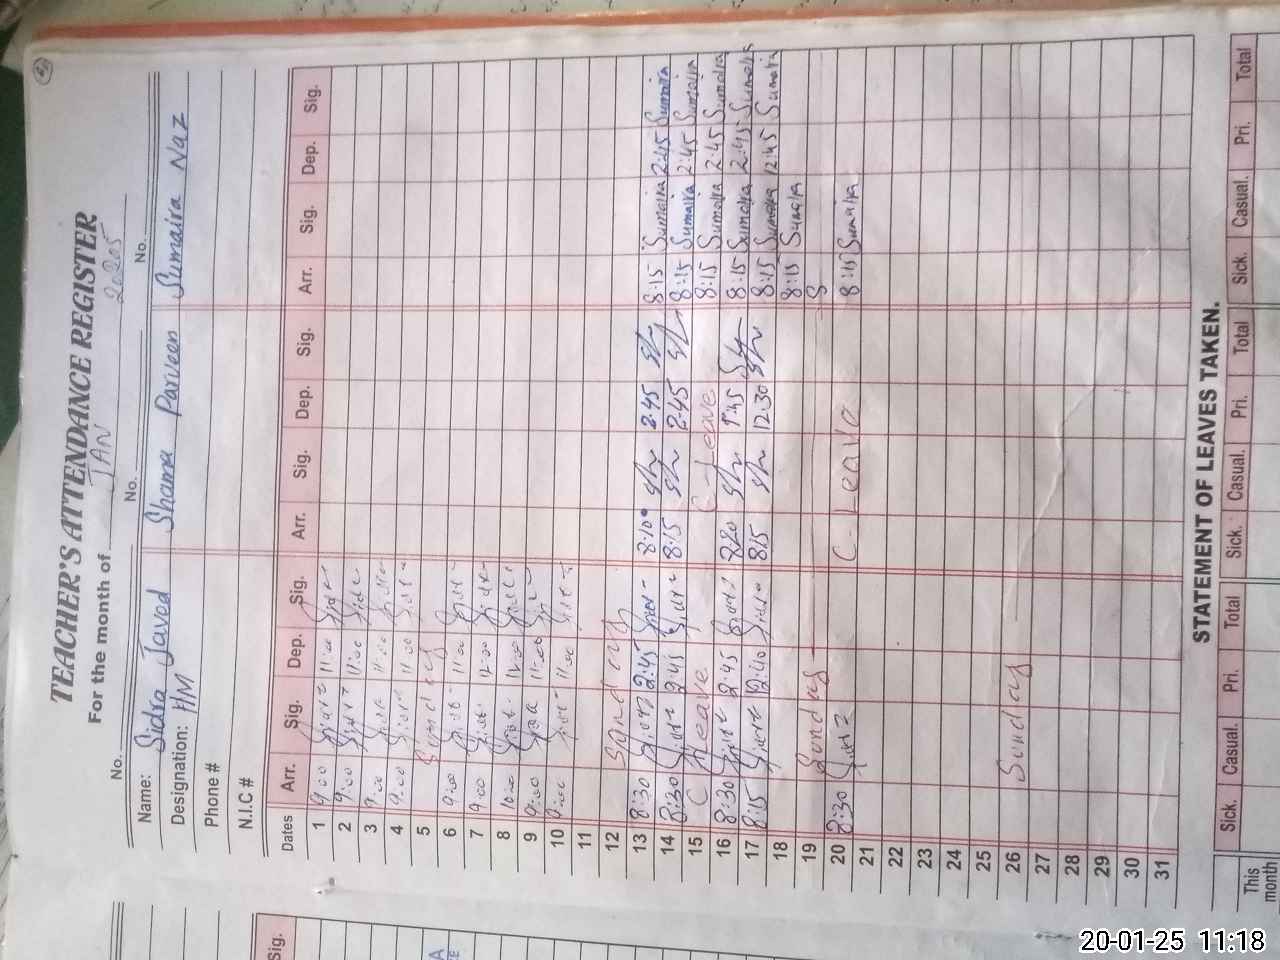 TEACHER'S ATTENDANCE REGISTER
For the month of JAN 20205
No. No. No.
Name: Sidra Javed Shama Parveen Sumaira Naz
Designation: HM
Phone #
N.I.C #
Dates Arr. Sig. Dep. Sig. Arr. Sig. Dep. Sig. Arr. Sig. Dep. Sig.
1 9:00 11:00
2 9:00 11:00
3 9:00 11:00
4 9:00 11:00
5 Sunday
6 9:00 11:00
7 9:00 12:00
8 10:00 12:00
9 9:00 11:00
10 9:00 11:00
11
12 Sunday
13 8:30 2:45 8:10 2:45 8:15 Sumaira 2:45 Sumaira
14 8:30 2:45 8:15 2:45 8:15 Sumaira 2:45 Sumaira
15 C Leave C-Leave 8:15 Sumaira 2:45 Sumaira
16 8:30 2:45 8:20 1:45 8:15 Sumaira 2:45 Sumaira
17 8:15 12:40 8:15 12:30 8:15 Sumaira 12:45 Sumaira
18 8:15 Sumaira
19 Sunday S
20 8:30 C-Leave 8:15 Sumaira
21
22
23
24
25
26 Sunday
27
28
29
30
31
STATEMENT OF LEAVES TAKEN.
Sick. Casual. Pri. Total Sick. Casual. Pri. Total Sick. Casual. Pri. Total
This month
Sig.
20-01-25 11:18